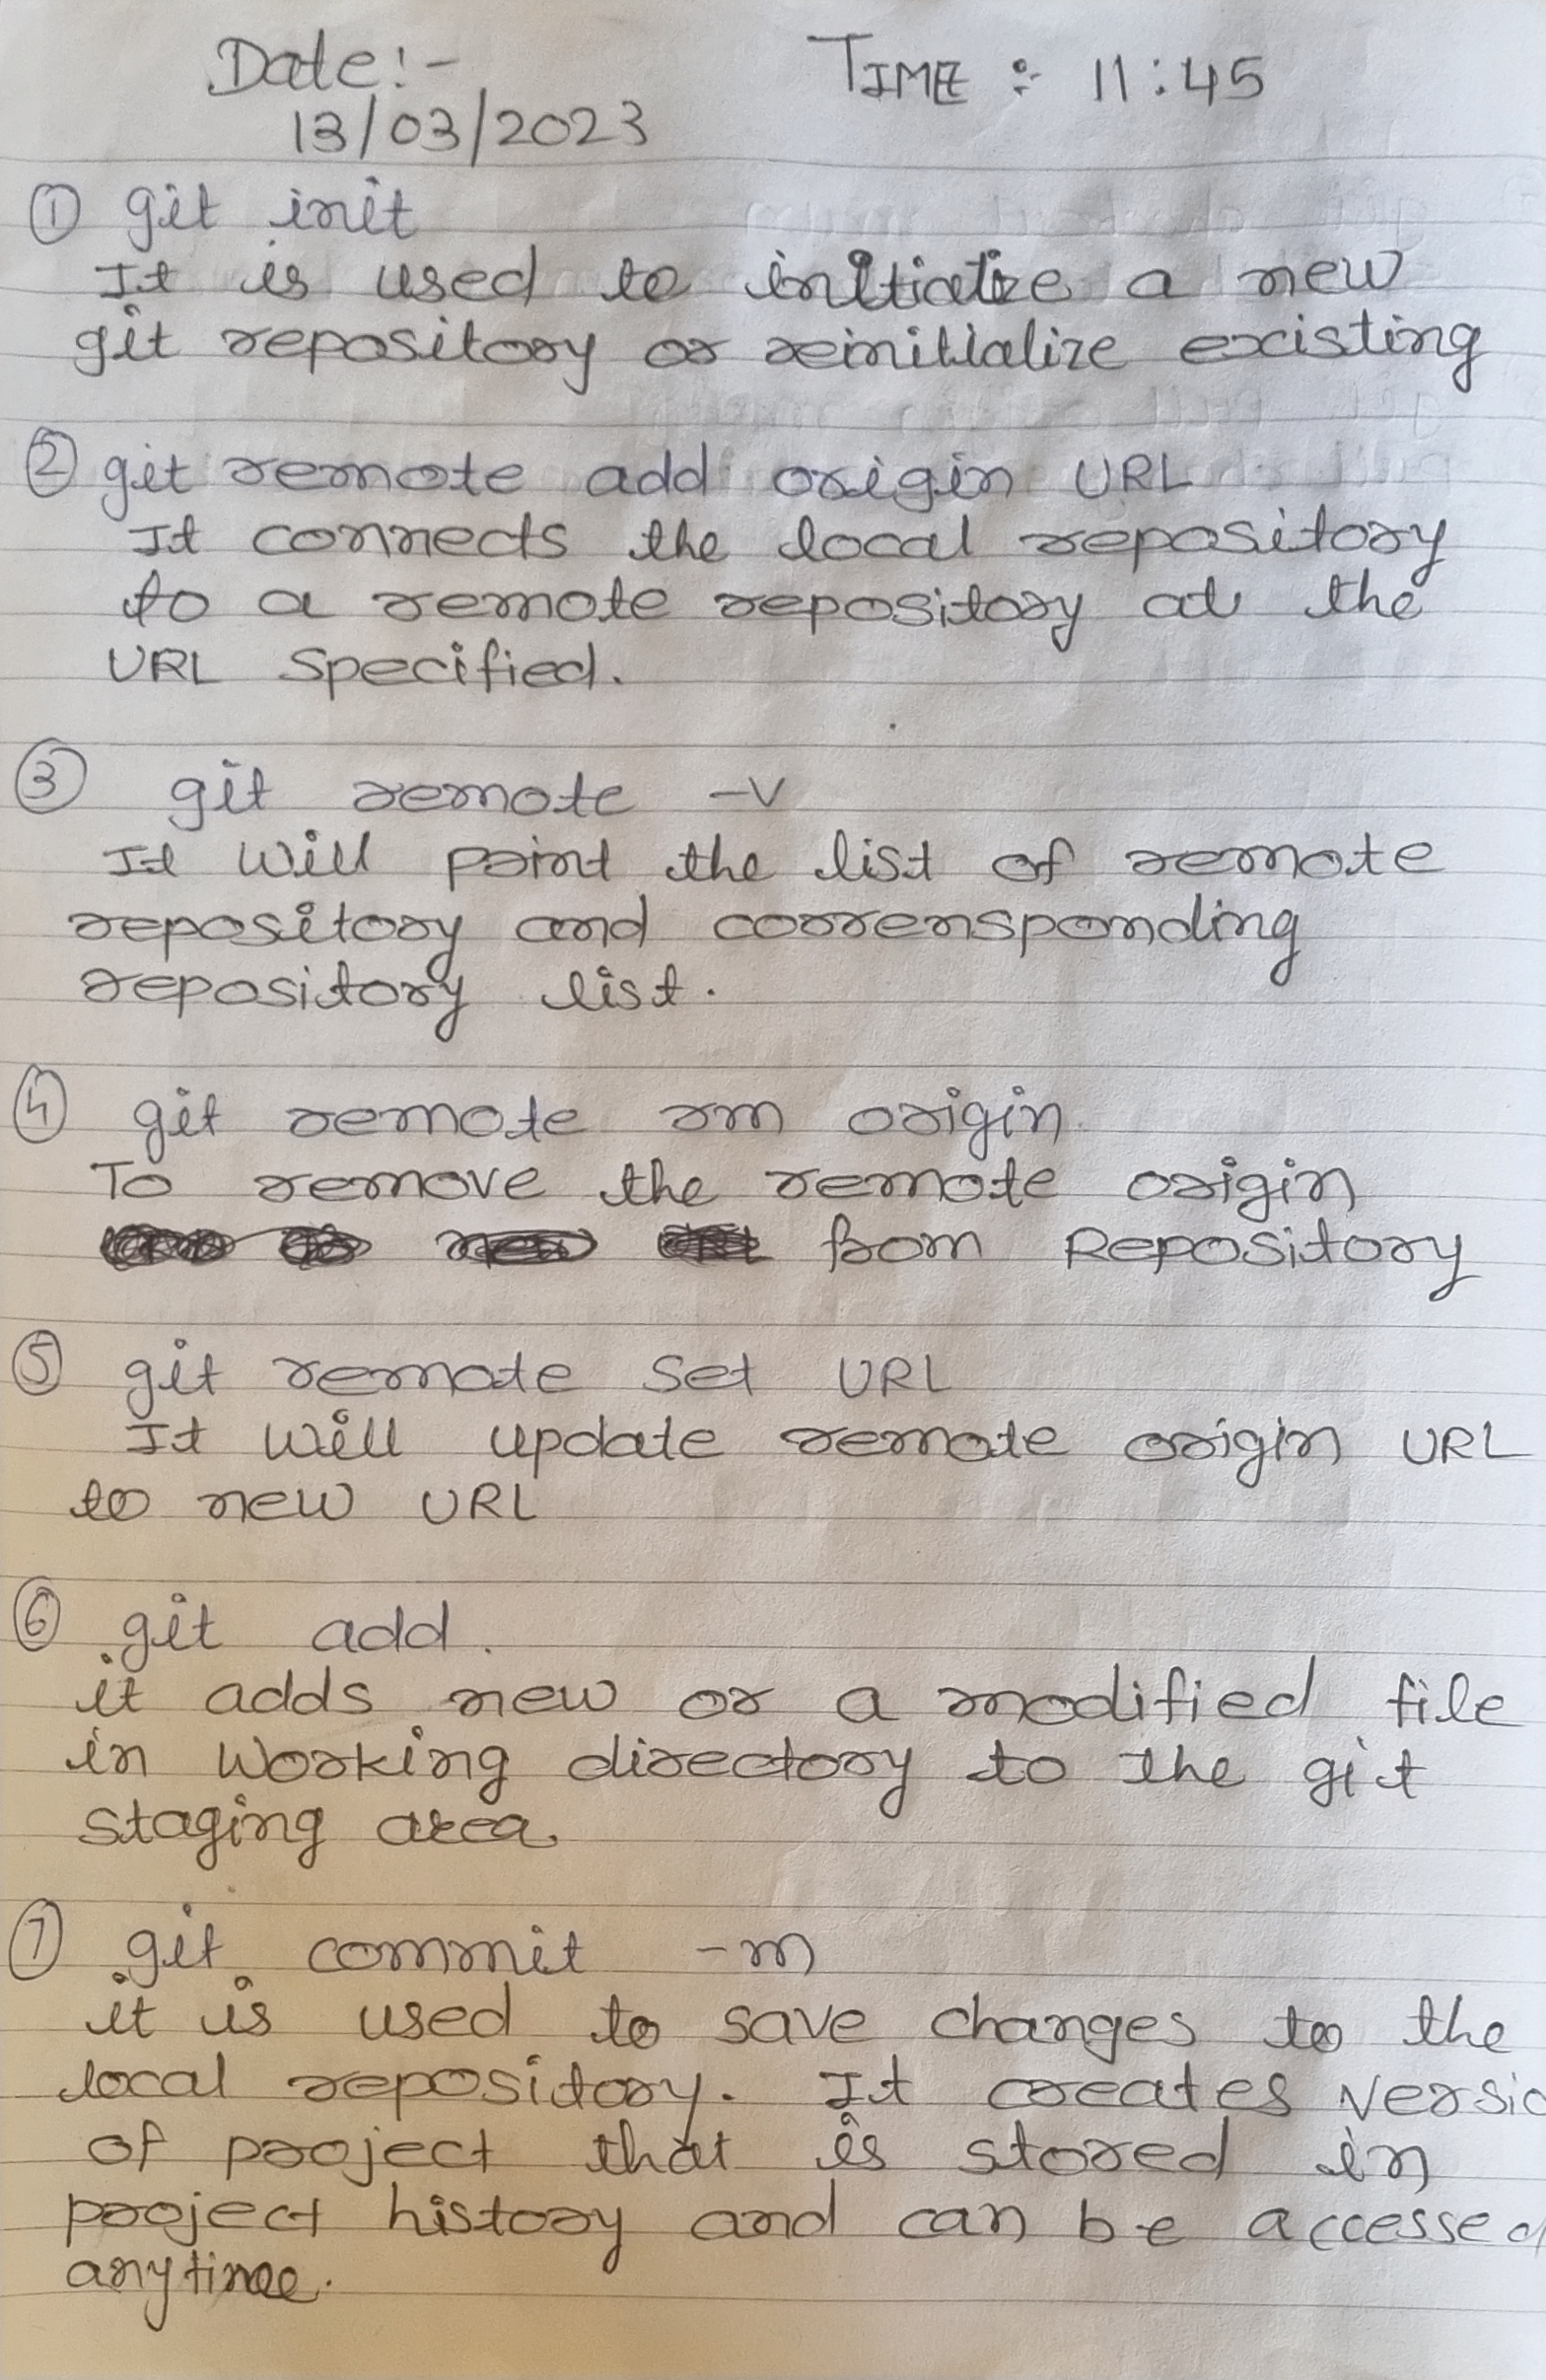 Date:-
TIME :- 11:45
13/03/2023
① git init
It is used to initialize a new
git repository or reinitialize existing
② git remote add origin URL
It connects the local repository
to a remote repository at the
URL Specified.
③ git remote -v
It will print the list of remote
repository and correnspponding
repository list.
④ git remote rm origin
To remove the remote origin
from Repository
⑤ git remote set URL
It will update remote origin URL
to new URL
⑥ git add .
it adds new or a modified file
in working directory to the git
staging area
⑦ git commit -m
it is used to save changes to the
local repository. It creates versio
of project that is stored in
project history and can be accessed
anytime.